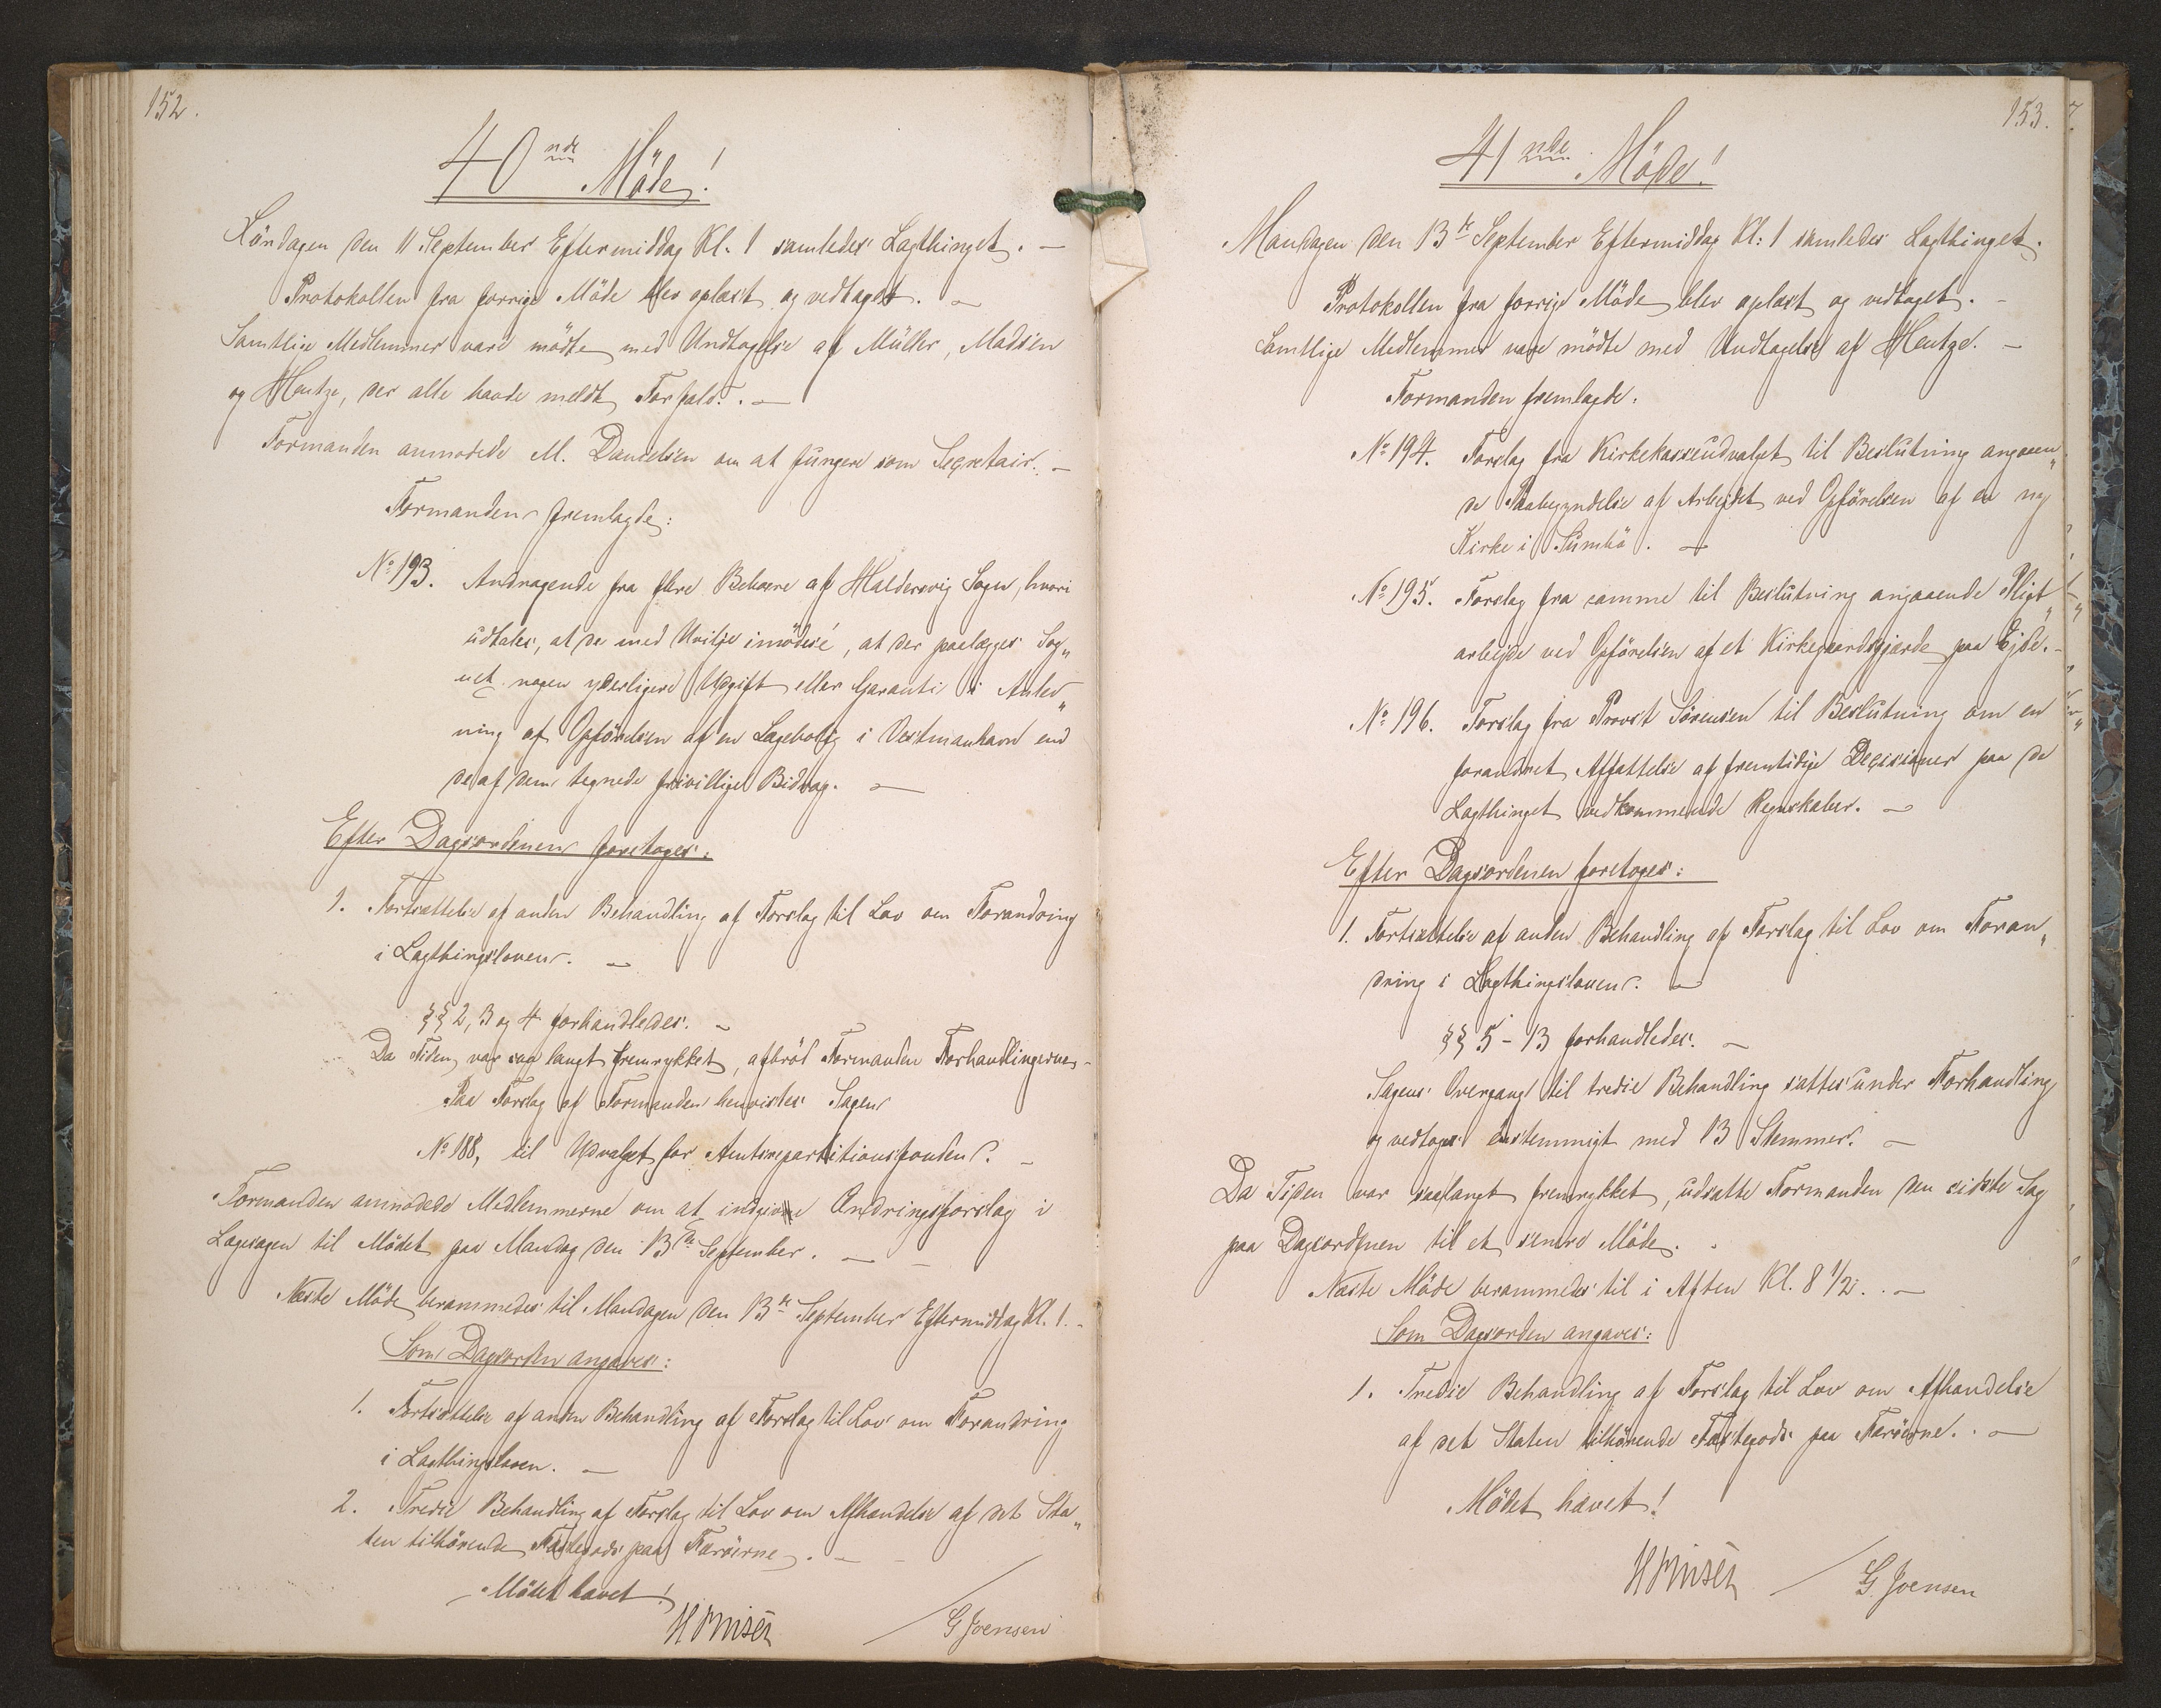 152.
40nde Möde!
Löndagen den 11 September Eftermiddag Kl. 1 samledes Lagthinget. —
Protokollen fra forrige Möde blev oplæst og vedtaget. —
Samtlige Medlemmer vare mödte med Undtagelse af Müller, Madsen
og Hentze, der alle havde meldt Forfald. —
Formanden anmodede M. Danielsen om at fungere som Secretair. —
Formanden fremlagde:
No 193. Andragende fra flere Beboere af Haldersvig Sogn, hvori
udtales, at de med Uvilje imödesé, at der paalægges Sog„
net nogen yderligere Udgift eller Garanti i Anled„
ning af Opförelsen af en Lægebolig i Vestmanhavn end
de af dem tegnede frivillige Bidrag. —
Efter Dagsordenen foretoges:
1. Fortsættelse af anden Behandling af Forslag til Lov om Forandring
i Lagthingsloven. —
§§ 2, 3 og 4 forhandledes. —
Da Tiden var saa langt fremrykket, afbröd Formanden Forhandlingerne. —
Paa Forslag af Formanden henvistes Sagen
No 188, til Udvalget for Amtsrepartitionsfonden. —
Formanden anmodede Medlemmerne om at indgive Ændringsforslag i
Lagesagen til Mödet paa Mandag den 13de September. —
Næste Möde berammedes til Mandagen den 13de September Eftermiddag Kl. 1. —
Som Dagsorden angaves:
1. Fortsættelse af anden Behandling af Forslag til Lov om Forandring
i Lagthingsloven. —
2. Tredie Behandling af Forslag til Lov om Afhændelse af det Sta„
ten tilhörende Fæstegods paa Færöerne. —
Mödet hævet!
/ G Joensen
153.
41nde Möde!
Mandagen den 13de September Eftermiddag Kl: 1 samledes Lagthinget.
Protokollen fra forrige Möde blev oplæst og vedtaget. —
Samtlige Medlemmer vare mödte med Undtagelse af Hentze. —
Formanden fremlagde:
No 194. Forslag fra Kirkekasseudvalget til Beslutning angaaen„
de Paabegyndelse af Arbejdet ved Opförelsen af en ny
Kirke i Sumbö. —
No 195. Forslag fra samme til Beslutning angaaende Pligt„
arbejde ved Opförelsen af et Kirkegaardsgjærde paa Ejde. —
No 196. Forslag fra Provst Sörensen til Beslutning om en
forandret Affattelse af fremtidige Decisioner paa de
Lagthinget vedkommende Regnskaber. —
Efter Dagsordenen foretoges:
1. Fortsættelse af anden Behandling af Forslag til Lov om Foran„
dring i Lagthingsloven. —
§§ 5 - 13 forhandledes. —
Sagens Overgang til tredie Behandling sattes under Forhandling
og vedtoges enstemmigt med 13 Stemmer. —
Da Tiden var saa langt fremrykket, udsatte Formanden den sidste Sag
paa Dagsordenen til et senere Möde. .
Næste Möde berammedes til i Aften Kl. 8 1/2. . —
Som Dagsorden angaves:
1. Tredie Behandling af Forslag til Lov om Afhændelse
af det Staten tilhörende Fæstegods paa Færöerne. . —
Mödet hævet!
/ G. Joensen